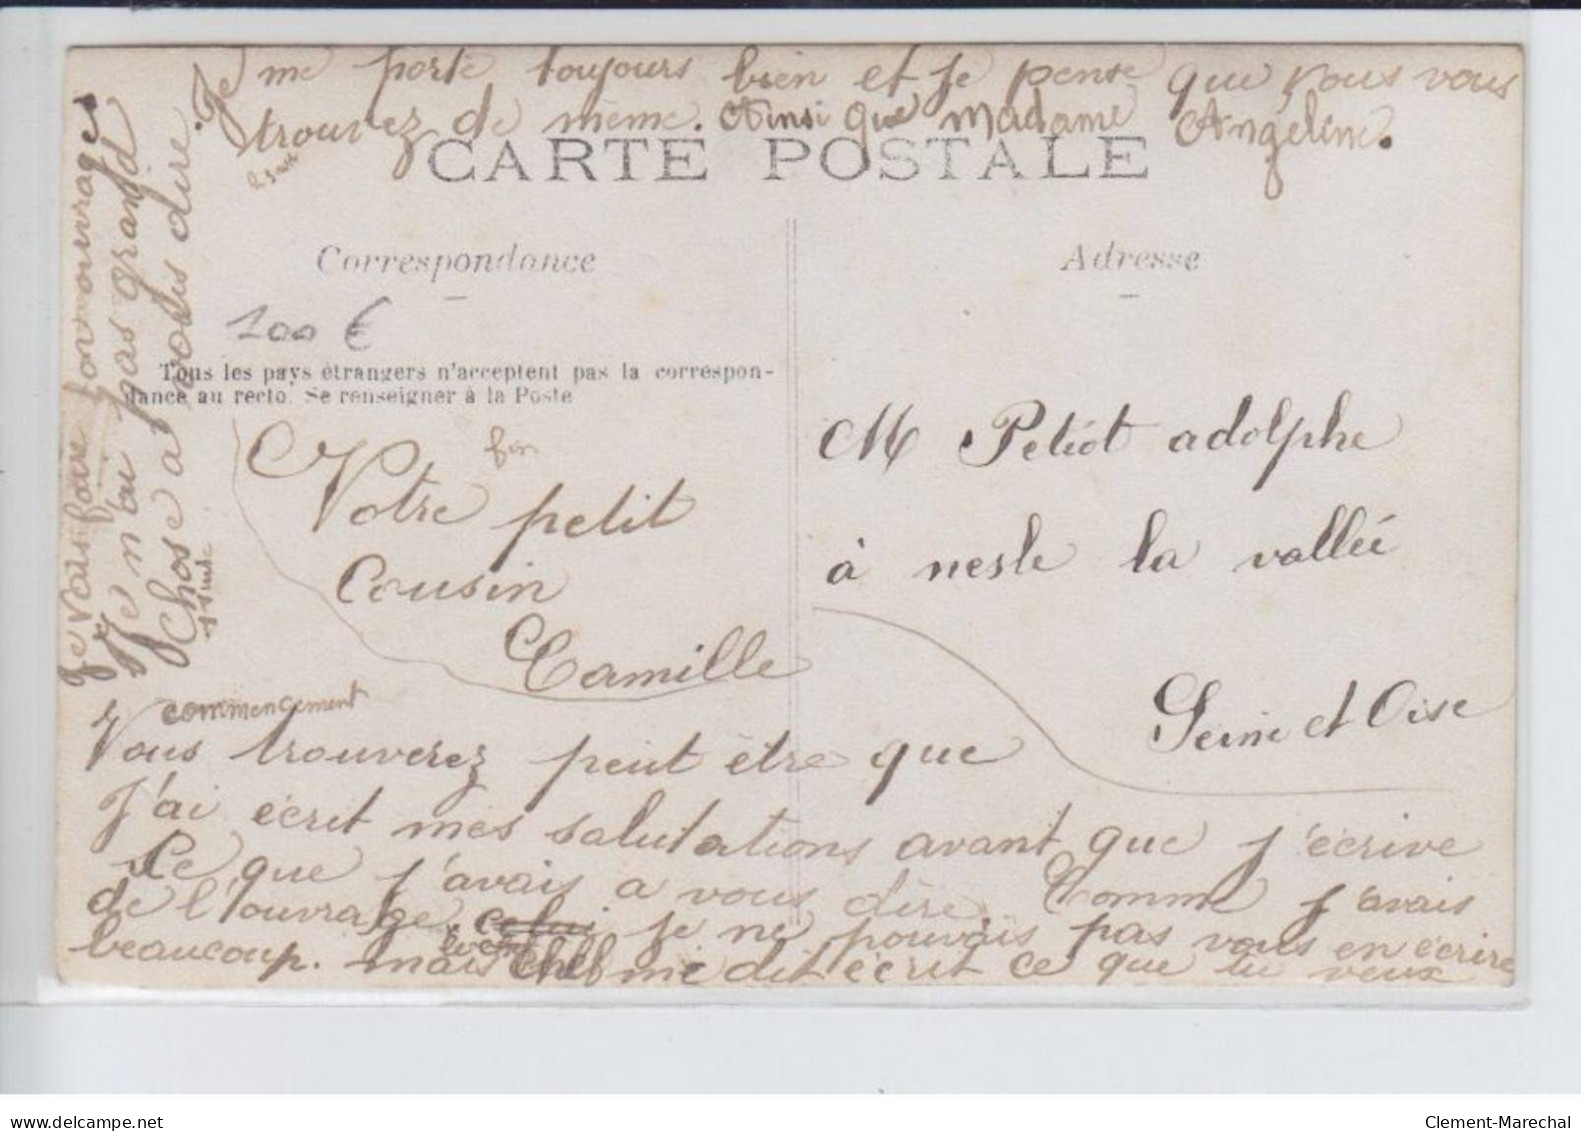 Je me porte toujours bien et je pense que vous vous
trouvez de même. Ainsi que Madame Angéline.
CARTE POSTALE
Correspondance
Adresse
100 €
Tous les pays étrangers n'acceptent pas la correspon-
dance au recto. Se renseigner à la Poste
fin
Votre petit
Cousin
Camille
M Petiot adolphe
à nesle la vallée
Seine et Oise
Je vais faire mon ouvrage
Je n'ai pas grand
Chose a vous dire.
suite
commencement
Vous trouverez peut être que
J'ai écrit mes salutations avant que j'écrive
Ce que j'avais a vous dire Comme j'avais
de l'ouvrage. celui je ne pouvais pas vous en écrire
beaucoup. mais chef me dit écrit ce que tu veux
delcampe.net
Clement-Marechal